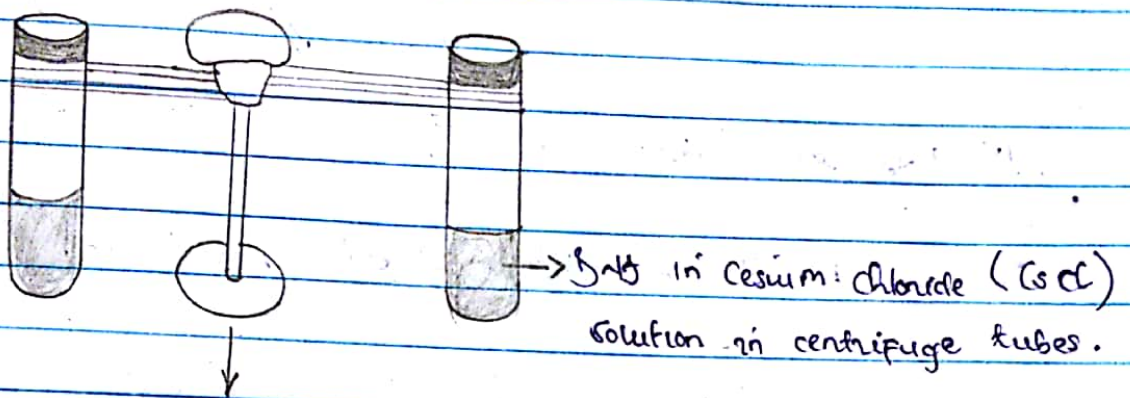 DNA in Cesium chloride (CsCl)
solution in centrifuge tubes.